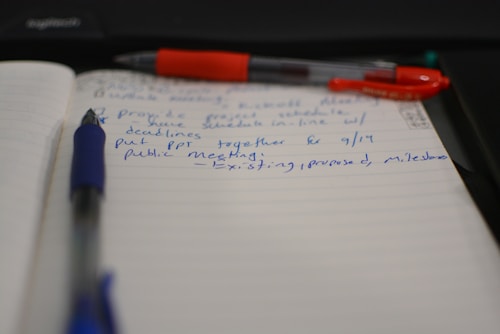 Logitech
update meeting
- Kickoff Meeting
Provide project schedule
- have schedule in-line w/
deadlines
put PPT together for 9/19
public meeting:
- Existing, proposed, milestones